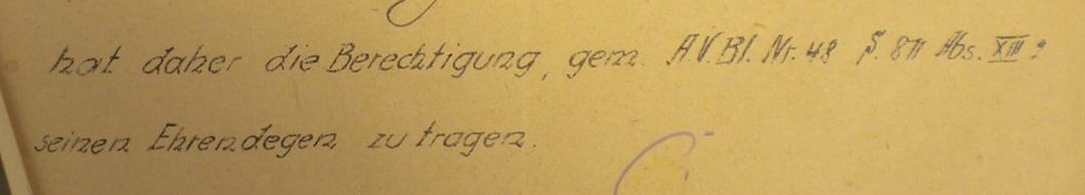 hat daher die Berechtigung, gem. A.V.Bl. Nr. 48 §. 871 Abs. XIII
seinen Ehrendegen zu tragen.